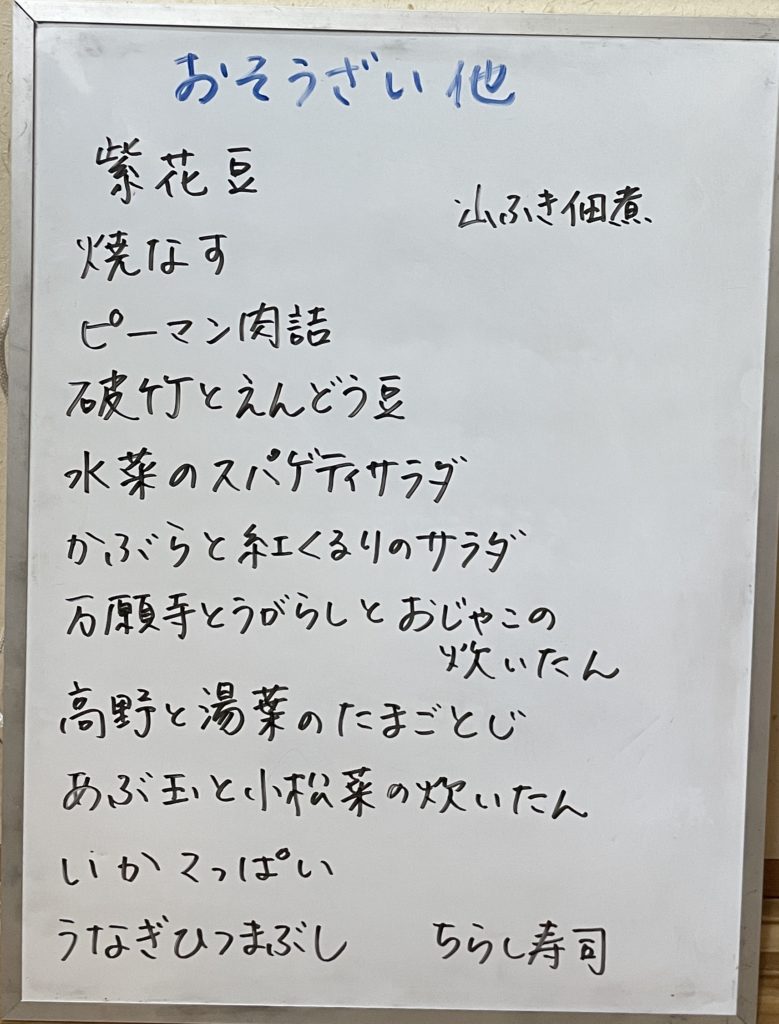 おそうざい他
紫花豆
山ふき佃煮
焼なす
ピーマン肉詰
破竹とえんどう豆
水菜のスパゲティサラダ
かぶらと紅くるりのサラダ
万願寺とうがらしとおじゃこの
炊いたん
高野と湯葉のたまごとじ
あぶ玉と小松菜の炊いたん
いかてっぱい
うなぎひつまぶし ちらし寿司